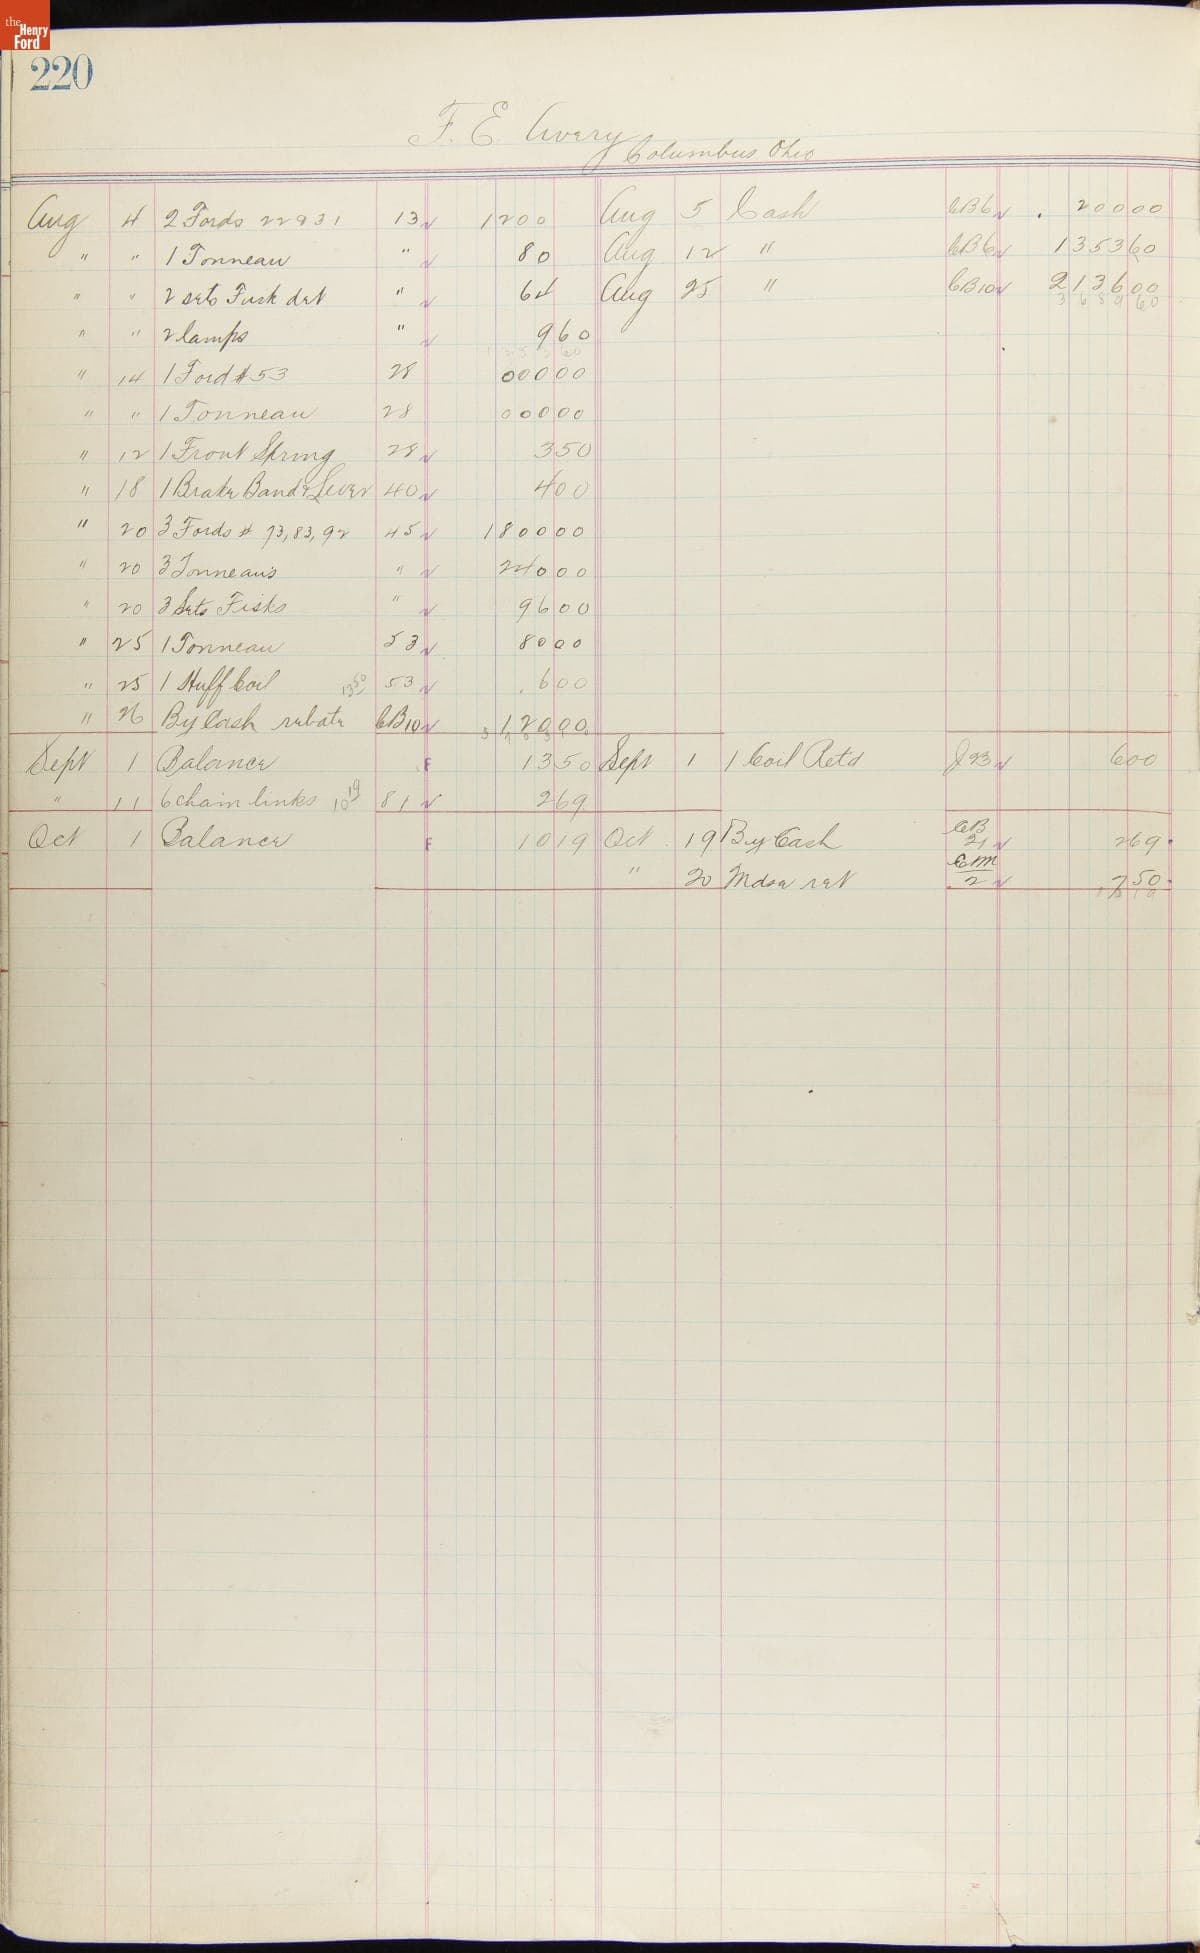 the Henry Ford
220
F. E. Avery
Columbus Ohio
Aug 4 2 Fords 22931 13 1200 Aug 5 Cash CB6 20000
" " 1 Tonneau " 80 Aug 12 " CB6 135360
" " 2 sets " 64 Aug 25 " CB10 213600
368960
" " 2 lamps " 960
" 14 1 Ford # 53 28 00000
" " 1 Tonneau 28 00000
" 12 1 Front Spring 28 350
" 18 1 Brake Band & Lever 40 400
" 20 3 Fords # 73, 83, 92 45 180000
" 20 3 Tonneaus " 24000
" 20 3 Sets Fisks " 9600
" 25 1 Tonneau 53 8000
" 25 1 Huff Coil 13 50 53 600
" 26 By Cash rebate CB10 12000
Sept 1 Balance F 1350 Sept 1 1 Coil Retd J23 600
" 11 6 chain links 10 19 81 269
Oct 1 Balance F 1019 Oct 19 By Cash CB 21 269
" 20 Mdse ret CM 2 750